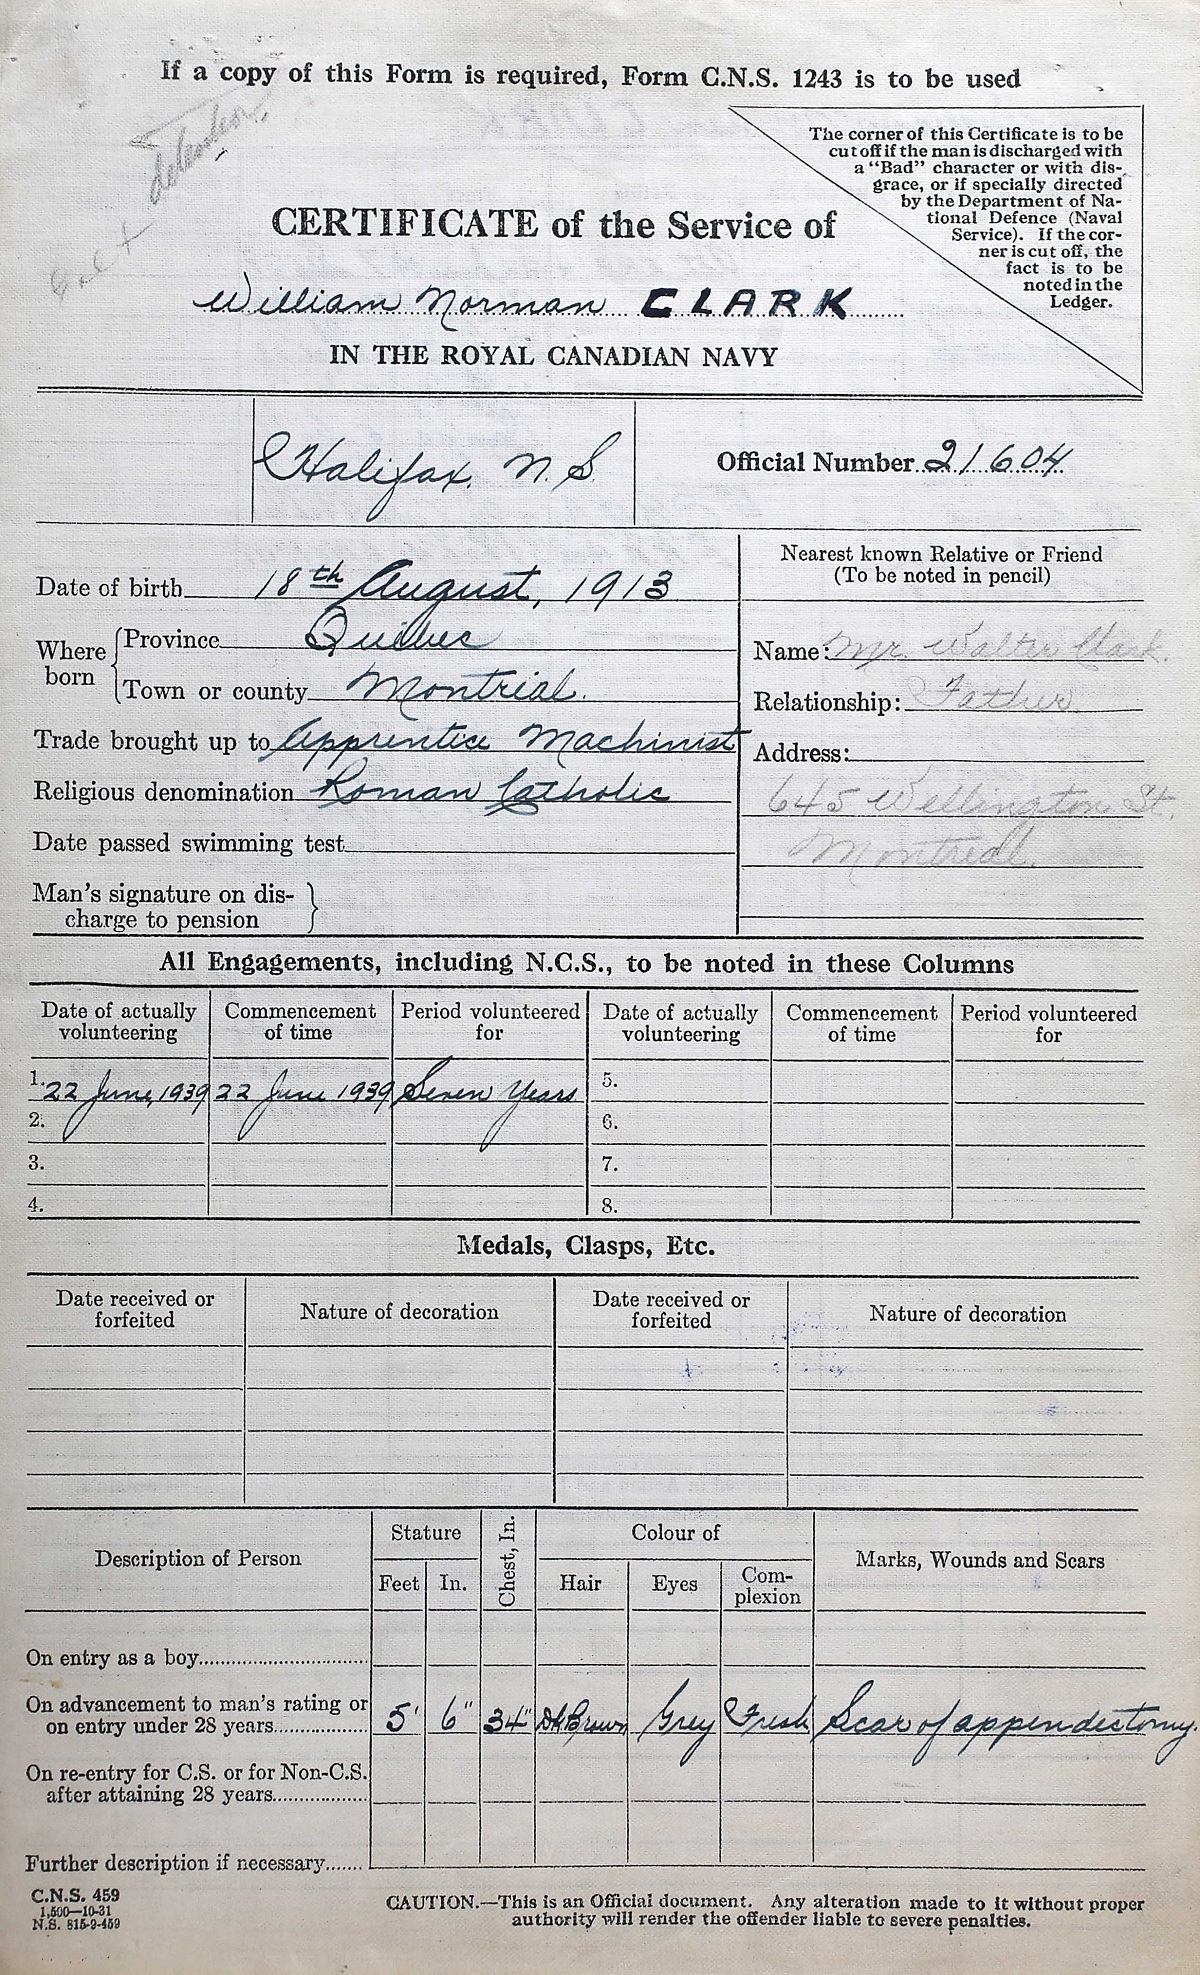 If a copy of this Form is required, Form C.N.S. 1243 is to be used
The corner of this Certificate is to be
cut off if the man is discharged with
a "Bad" character or with dis-
grace, or if specially directed
by the Department of Na-
tional Defence (Naval
Service). If the cor-
ner is cut off, the
fact is to be
noted in the
Ledger.
CERTIFICATE of the Service of
William Norman CLARK
IN THE ROYAL CANADIAN NAVY
Halifax, N.S.
Official Number 21604
Date of birth 18th August, 1913
Where born
Province Quebec
Town or county Montreal.
Trade brought up to Apprentice Machinist
Religious denomination Roman Catholic
Date passed swimming test
Man's signature on dis-
charge to pension
Nearest known Relative or Friend
(To be noted in pencil)
Name: Mr. Walter Clark.
Relationship: Father.
Address:
645 Wellington St.
Montreal.
All Engagements, including N.C.S., to be noted in these Columns
Date of actually volunteering Commencement of time Period volunteered for Date of actually volunteering Commencement of time Period volunteered for
1. 22 June, 1939 22 June 1939 Seven Years 5.
2. 6.
3. 7.
4. 8.
Medals, Clasps, Etc.
Date received or forfeited Nature of decoration Date received or forfeited Nature of decoration
Description of Person Stature Chest, In. Colour of Marks, Wounds and Scars
Feet In. Hair Eyes Com-plexion
On entry as a boy
On advancement to man's rating or
on entry under 28 years 5' 6" 34" Dk Brown Grey Fresh Scar of appendectomy.
On re-entry for C.S. or for Non-C.S.
after attaining 28 years
Further description if necessary
C.N.S. 459
1,500—10-31
N.S. 815-9-459
CAUTION.—This is an Official document. Any alteration made to it without proper
authority will render the offender liable to severe penalties.